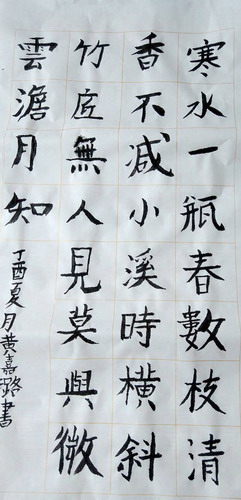 寒水一瓶春數枝清
香不减小溪時橫斜
竹底無人見莫與微
雲澹月知
丁酉夏月黄嘉璐書